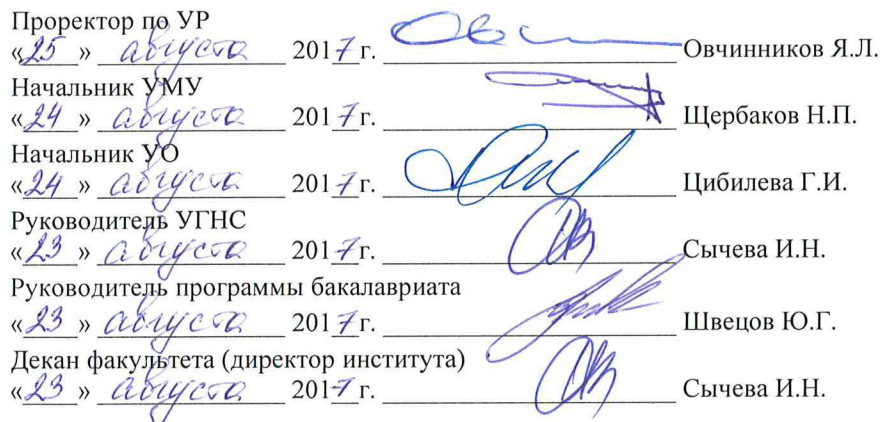 Проректор по УР
«25» августа 2017 г. Овчинников Я.Л.
Начальник УМУ
«24» августа 2017 г. Щербаков Н.П.
Начальник УО
«24» августа 2017 г. Цибилева Г.И.
Руководитель УГНС
«23» августа 2017 г. Сычева И.Н.
Руководитель программы бакалавриата
«23» августа 2017 г. Швецов Ю.Г.
Декан факультета (директор института)
«23» августа 2017 г. Сычева И.Н.